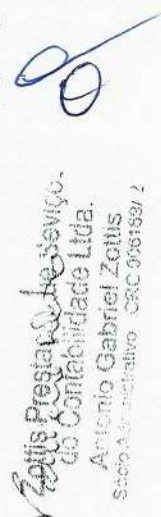 Zottis Prestadora de Serviço.
do Contabilidade Ltda.
Antonio Gabriel Zottis
Sócio Administrativo CRC 006169/